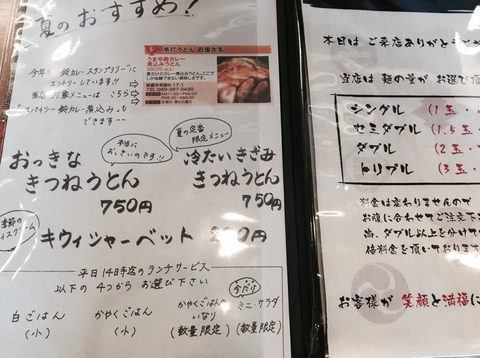 夏のおすすめ!
今年も鈴カレースタンプラリーに
エントリーしています!!
当店の応募メニューは こちら
"スパイシー鈴カレー煮込み"も
できます〜
5 手打うどん 四国大名
うま辛鈴カレー
煮込みうどん
TEL.059-387-0430
本当に
おっきいのです!!
おっきな
きつねうどん
750円
夏の定番
限定メニュー
冷たいきざみ
きつねうどん
750円
季節の
アイスクリーム
キウイシャーベット
平日14時迄のランチサービス
以下の4つから お選び下さい
白ごはん
(小)
かやくごはん
(小)
かやくごはんの
いなり
(数量限定)
今だけ
ミニ・サラダ
(数量限定)
本日は ご来店ありがとうご
当店は 麺の量が お選び頂
シングル (1玉
セミダブル (1.5玉
ダブル (2玉
トリプル (3玉
料金は変わりませんので
お腹に合わせてご注文下
尚、ダブル以上を分けて
倍料金を頂いております
お客様が 笑顔と満福に